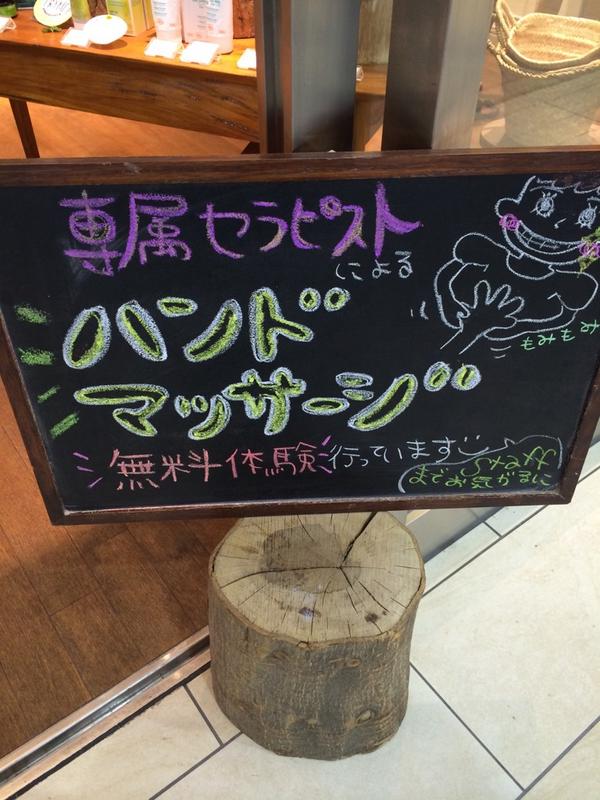 専属セラピスト
による
ハンド
マッサージ
もみもみ
無料体験行っています
staff
までお気がるに